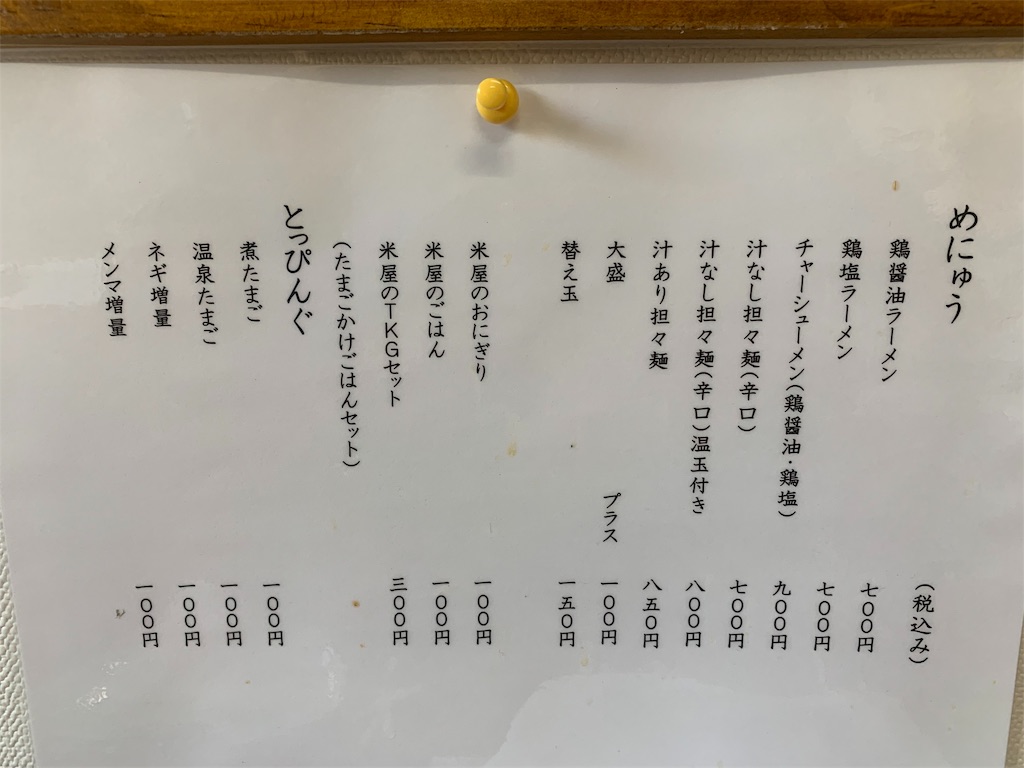 めにゅう
(税込み)
鶏醤油ラーメン 七〇〇円
鶏塩ラーメン 七〇〇円
チャーシューメン(鶏醤油・鶏塩) 九〇〇円
汁なし担々麺(辛口) 七〇〇円
汁なし担々麺(辛口)温玉付き 八〇〇円
汁あり担々麺 八五〇円
大盛 プラス 一〇〇円
替え玉 一五〇円
米屋のおにぎり 一〇〇円
米屋のごはん 一〇〇円
米屋のTKGセット 三〇〇円
(たまごかけごはんセット)
とっぴんぐ
煮たまご 一〇〇円
温泉たまご 一〇〇円
ネギ増量 一〇〇円
メンマ増量 一〇〇円